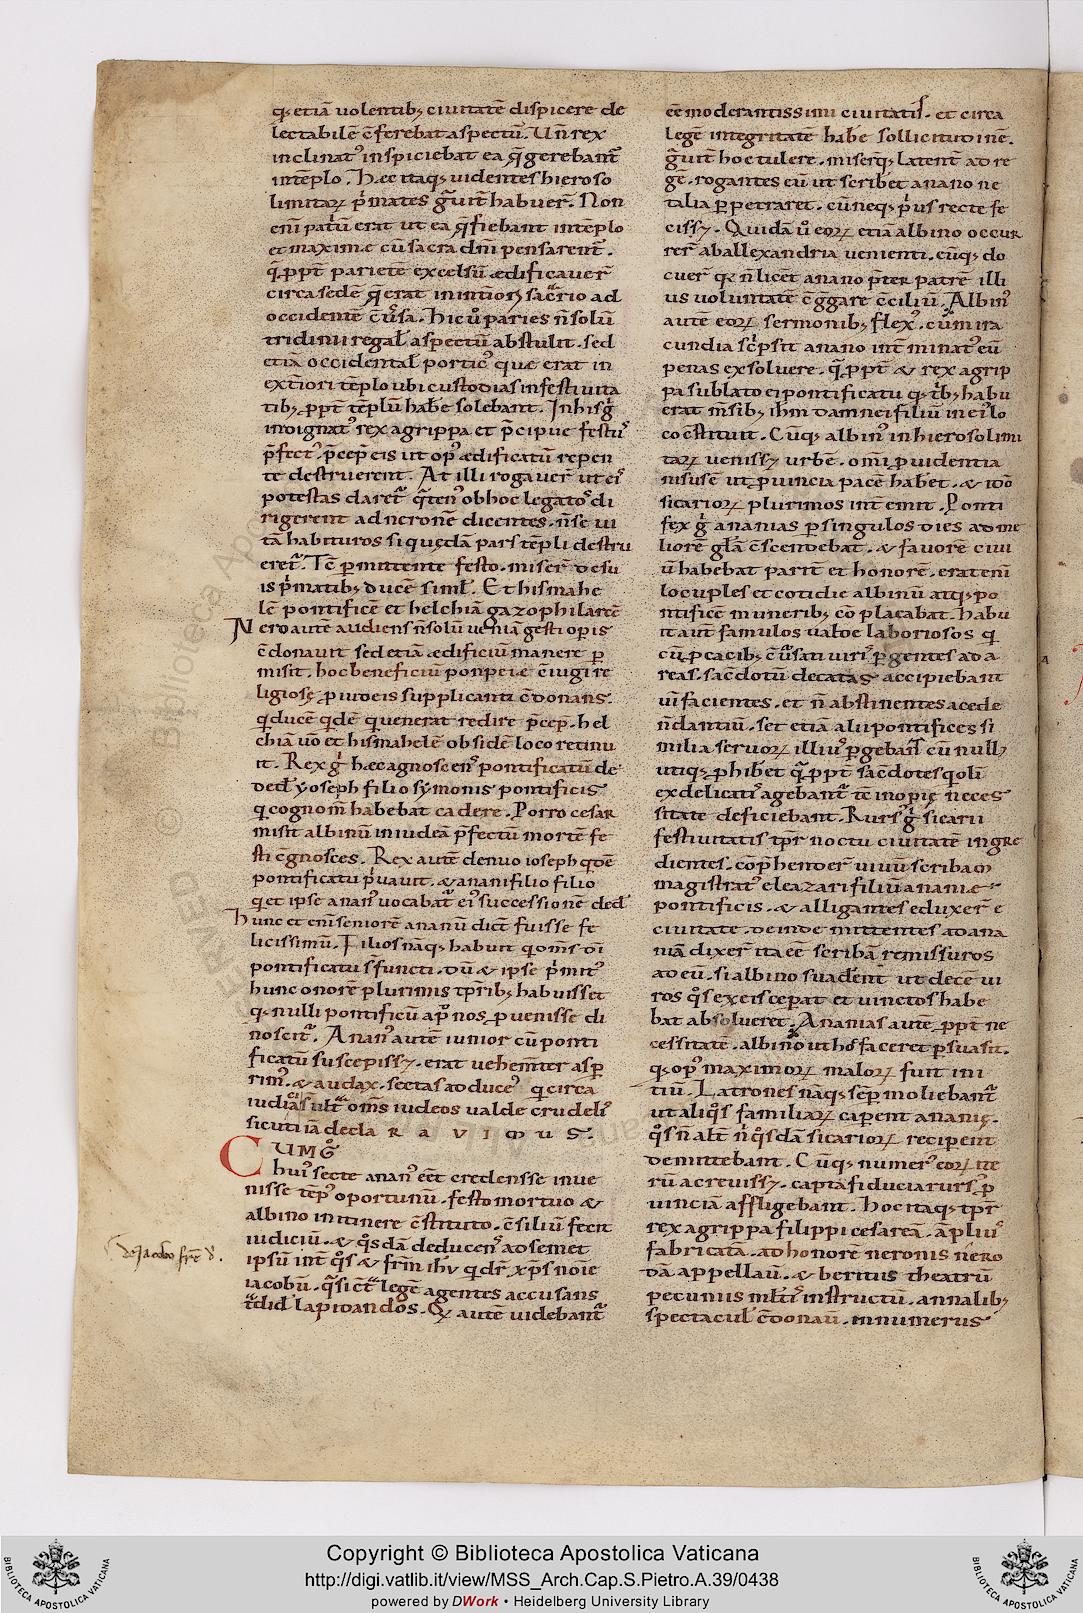 q; etiā uolentib; ciuitatē dispicere de
lectabilē c̄ferebat aspectū. Un̄ rex
inclinat᾽ inspiciebat ea q̄ gerebant᷑
intēplo. Hæc itaq; uidentes hieroso
limitaꝝ p̄mates g̃uit̄ habuer̄. Non
eni patriū erat ut ea q̄ fiebant intēplo
et maxime cū sacra dn̄i pensarent᷑.
q̄ppt̄ parietē excelsū ædificauer̄
circa sedē q̄ erat in int̄iori sac̄rio ad
occidentē c̄uersa. Hic ů paries n̄ solū
tridinii regal̄ aspectum abstulit. sed
etiā occidental̄ portic᾽ quæ erat in
ext̄iori tēplo ubi custodias infestiuita
tib; ppt̄ tēplū hab̄e solebant. In his ḡ
indignat᾽ rex agrippa et p̄cipue fest᾽
p̄fect᾽. p̄cep̄ eis ut op᾽ ædificatū repen
te destruerent. At illi rogauer̄ ut ei᾽
potestas daret᷑ q̄ten᾽ ob hoc legatos di
rigerent ad neronē dicentes. n̄ se ui
tā habituros si quędā pars tēpli destru
eret᷑. Tc̄ pmittente festo. miser̄ de su
is p̄matib; ducē simł. Et hismahe
lē pontificē et helchiā gazophilacē
Nero autē audiens n̄ solū ueniā gesti operis
c̄donauit sed etiā ædificiū manere p
misit. hoc beneficiū ponpeiæ c̄iugi re
ligiosę p iudeis supplicanti c̄donans.
q̄ ducē qdē q uenerat redire p̄cep̄. hel
chiā uō et hismahelē obsidē loco retinu
it. Rex ḡ hæc agnoscens pontificatū de
dedit yoseph filio symonis pontificis
q cognom̄ habebat cadere. Porro cesar
misit albinū in iudeā p̄fectū mortē fe
sti c̄gnosces. Rex autē denuo ioseph qdē
pontificatu p̄uauit. & anani filio filio
q et ipse anan᾽ uocabat᷑ ei᾽ successionē ded̄
hunc et eni seniorē ananū dict̄ fuisse fe
licissimū. Filios nāq; habuit q om̄s di
pontificatu s̄functi. dū & ipse p̄mit᾽
hunc onorē plurimis tp̄rib; habuisset
q; nulli pontificū apd̄ nos puenisse di
noscit᷑. Anan᾽ autē iunior cū ponti
ficatū suscepiss;. erat uehem̄ter asp
rim᾽. & audax. sectas adducens q circa
iudicia ult᷑ om̄s iudeos ualde crudelis
sicuti iā declaRAVIMUS.
CUMQ̊
hui᾽ secte anan᾽ eēt credensse inue
nisse tēp᾽ oportunū. festo mortuo &
albino in itinere c̄stituto. c̄siliū fecit
iudiciū. & q̊sdā deducens ad semet
ipsū int̄ q̊s & fr̄m ihū q dr̄ xp̄s noīe
iacobū. q̄si c̄t᷑ legē agentes accusans
t᷑did̄ lapidandos. Q̄ autē uidebant᷑
de Jacobo fr̄e d.
eē moderantissimi ciuitatis. et circa
legē integritatē habē sollicitudinē.
g̃uit̄ hoc tulere. miserq; latent̄ ad re
gē. rogantes eū ut scriberet anano ne
talia ppetraret. cū neq; p̄us recte fe
ciss;. Quidā ũ eoꝝ etiā albino occur
rer̄ ab allexandria uenienti. cūq; do
cuer̄ q̄ n̄ licet anano p̄ter patrē illi
us uoluntatē c̄ggare c̄ciliū. Albin᾽
autē eoꝝ sermonib; flex᾽. cum ira
cundia sc̄psit anano int̄minat᾽ eū
penas exsoluere. q̄ppt̄ & rex agrip
pa sublato ei pontificatu q; trib; habu
erat m̄sib; ihm damnei filiū in ei᾽ lo
co c̄stituit. Cūq; albin᾽ in hierosolimi
taꝝ ueniss; urbē. omī puidentia
nisus ē ut puincia pacē haberet. & ido
sicarioꝝ plurimos int̄emit. Ponti
fex ḡ ananias p singulos dies ad me
liorē glā c̄scendebat. & fauorē ciui
ū habebat parit̄ et honorē. erat eni
locuples et cotidie albinū atq; po
ntificē munerib; cōplacabat. Habu
it autē famulos ualde laboriosos q
cū pcacib; c̄uersati uiri᾽ pgentes ad a
reas. sac̄dotū decatas accipiebant
uim facientes. et n̄ abstinentes a cede
n̄ dantiū. Set etiā alii pontifices si
milia seruoꝝ illiu᾽ pgebant᷑ cū null᾽
utiq; phiberet q̄ppt̄ sac̄dotes q olī
ex delicatis agebant᷑ tc̄ inopię neces
sitate deficiebant. Rurs᾽ ḡ sicarii
festiuitatis tp̄r noctu ciuitatē ingre
dientes. cōp̄hender̄ uiuū scribam
magistrat᾽ eleazari filiū ananiæ
pontificis. & alligantes eduxer̄ e
ciuitate. deinde mittentes ad ana
niā dixer̄ ita eē scribā remissuros
ad eū. si albino suaderent ut decē ui
ros q̊s ex eis ceperat et uinctos habe
bat absolueret. Ananias autē ppt̄ ne
cessitatē. albino ut hoc faceret psuasit.
q; op᾽ maximoꝝ maloꝝ fuit ini
tiū. Latrones nāq; sēp moliebant᷑
ut aliq̊s familiaꝝ caperent ananię.
q̊s n̄ alit̄ n̄ q̊sdā sicarioꝝ reciperent
demittebant. Cūq; numer᾽ eoꝝ ite
rū acreuiss;. capta fiducia rurs᾽ p
uinciā affligebant. Hoc itaq; tp̄r
rex agrippa filippi cesareā. āpliu᾽
fabricatā. ad honorē neronis nero
dā appellau. & beritus theatrū
pecuniis mltis instructū. annalib;
spectacul̄ c̄donau. innumerus
Copyright © Biblioteca Apostolica Vaticana
http://digi.vatlib.it/view/MSS_Arch.Cap.S.Pietro.A.39/0438
powered by DWork • Heidelberg University Library
BIBLIOTECA APOSTOLICA VATICANA
BIBLIOTECA APOSTOLICA VATICANA